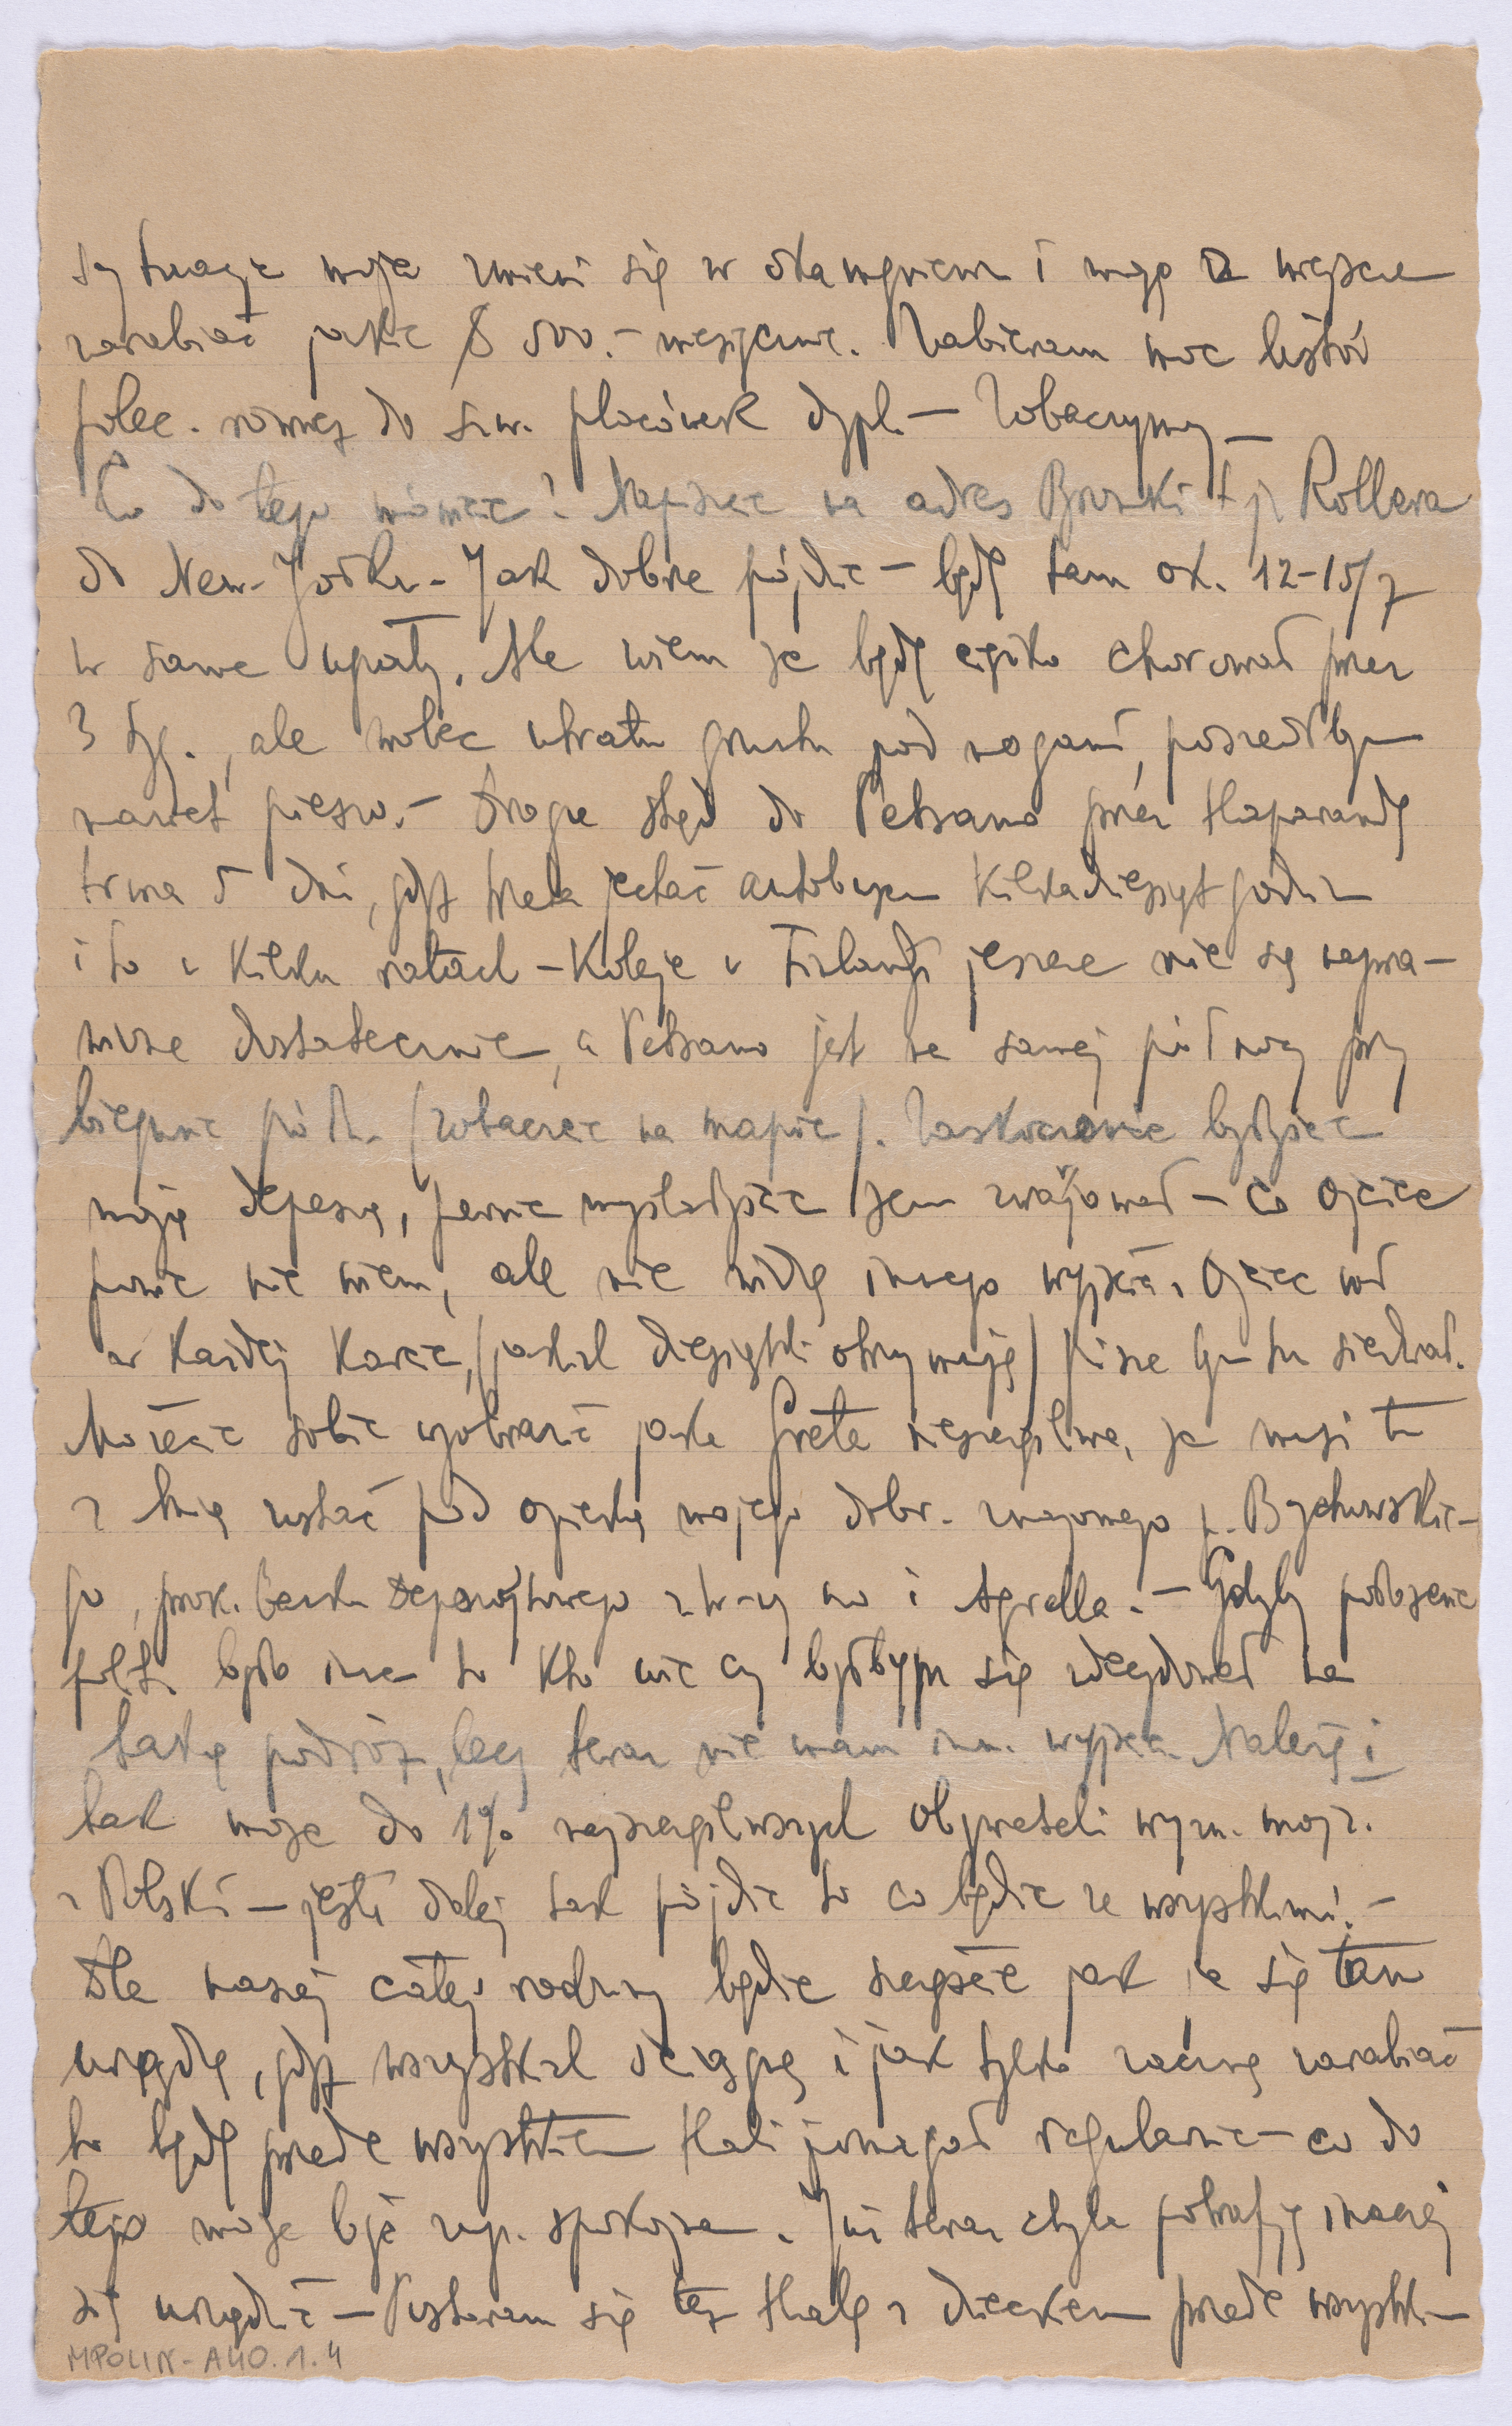 sytuacja moja zmieni się w okamgnieniu i mogę z miejsca
zarabiać jakie $ 500.- miesięcznie. Zabieram moc listów
polec. również do szw. placówek dypl. – Zobaczymy –
Co do tego mówicie? Napiszcie na adres Bronki i p. Rollera
do New-Yorku – Jak dobrze pójdzie – będę tam ok. 12-15/7
w same upały. Ale wiem że będę ciężko chorował przez
3 tyg., ale wobec utraty gruntu pod nogami, poszedłbym
nawet pieszo. – Droga stąd do Petsamo przez Haparandę
trwa 5 dni, gdyż trzeba jechać autobusem kilkadziesiąt godzin
i to w kilku ratach – Koleje w Finlandji jeszcze nie są napra-
wione dostatecznie, a Petsamo jest na samej północy przy
biegunie półn. (zobaczcie na mapie). Zaskoczeni będziecie
moją depeszą, pewnie myśleliście żem zwarjował – co Ojciec
powie nie wiem, ale nie widzę innego wyjścia. Ojciec
w każdej karcie, (jakich dziesiątki otrzymuję) pisze bym tu siedział.
Możecie sobie wyobrazić jaka Greta nieszczęśliwa, że musi tu
z Inią zostać pod opieką mojego dobr. znajomego p. Bychowskie-
go, prok. Banku Depozytowego z W-wy no i Agrella. – Gdyby położenie
polit. było inne to kto wie czy byłbym się zdecydował na
taką podróż, lecz teraz nie mam inn. wyjścia. Należę i
tak może do 1% najszczęśliwszych obywateli wyzn. mojż.
z Polski – jeśli dalej tak pójdzie to co będzie ze wszystkimi. –
Dla naszej całej rodziny będzie szczęście jak ja się tam
urządzę, gdyż wszystkich ściągnę i jak tylko zacznę zarabiać
to będę przede wszystkiem Hali pomagał regularnie – co do
tego może być zup. spokojna. Już teraz chyba potrafię inaczej
się urządzić – Postaram się też Halę z dzieckiem przede wszystkiem
MPOLIN-A40.1.4